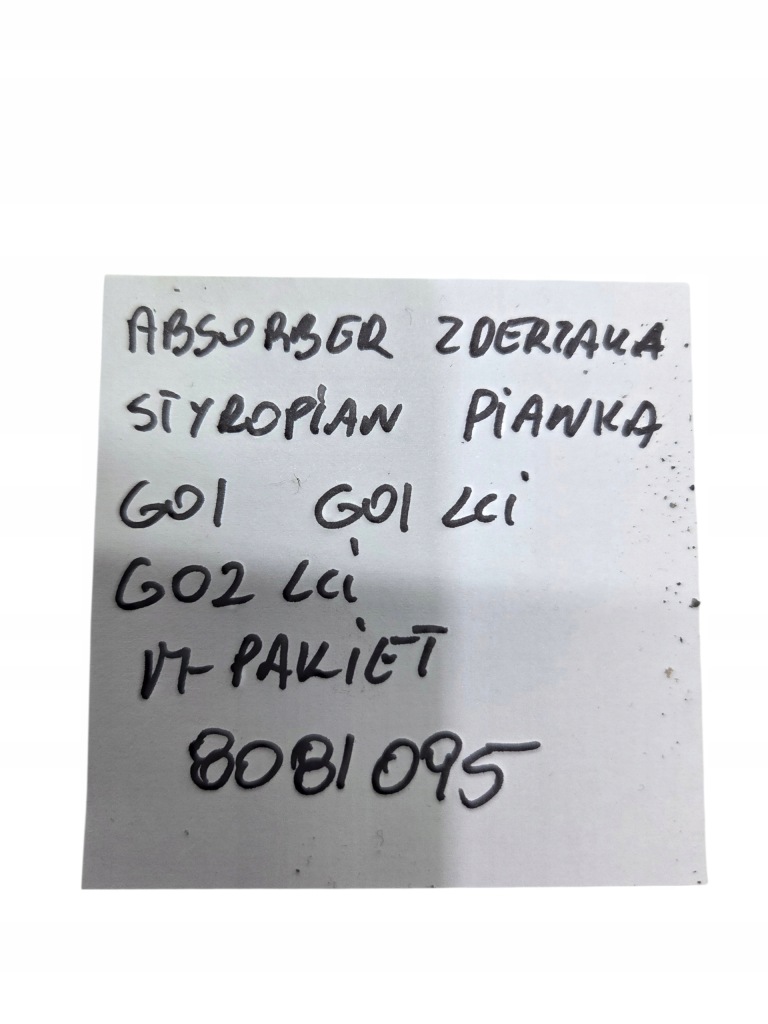 ABSORBER ZDERZAKA
STYROPIAN PIANKA
G01 G01 LCi
G02 LCi
M-PAKIET
8081095